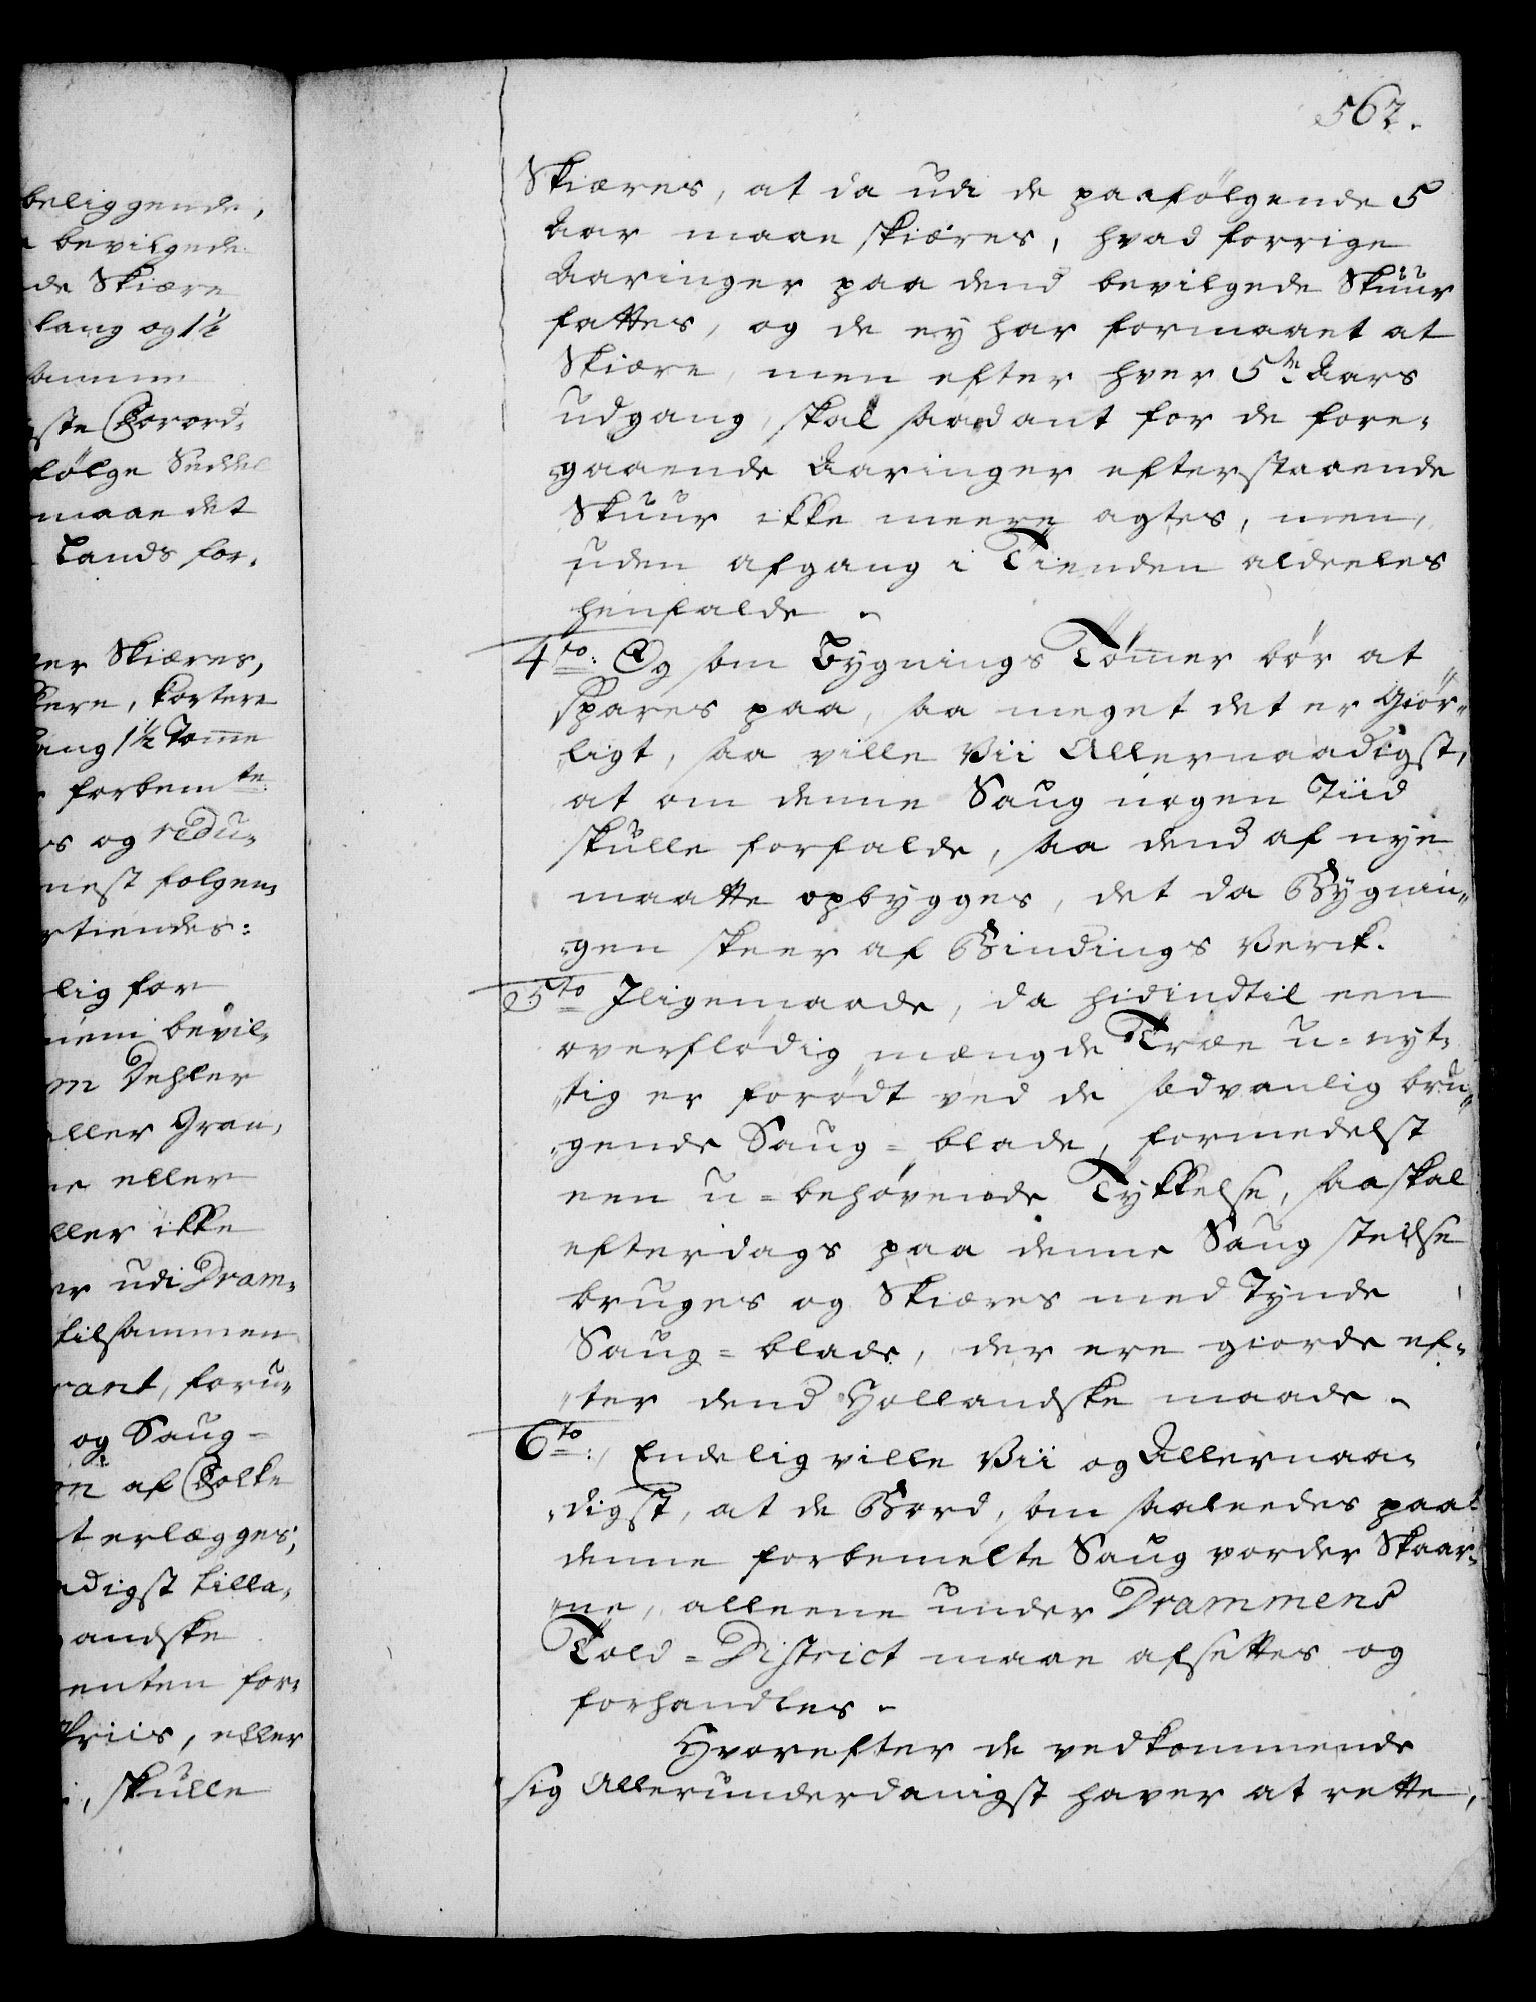 beliggende,
bevilgede
de Skiære
lang og 1½
samme
ste Forord-
følge Seddel
maae det
Lands for-
er Skiæres,
kere, kortere
ang 1½ Tomme
forbemte
os og redu-
nest følgen-
rtiendes:
lig for
bevil-
Dehler
ller Gran,
eller
ller ikke
er udi Dram-
tilsammen
rant, foru-
og Saug-
af Folke
t erlægges,
digst tilla-
andske
enten for-
Priis, eller
, skulle
562.
Skiæres, at da udi de paafølgende 5
Aar maae skiæres, hvad forrige
Aaringer paa dend bevilgede Skuur
fattes, og de ey har formaaet at
Skiære, men efter hver 5te Aars
udgang, skal saadant for de fore-
gaaende Aaringer efterstaaende
Skuur ikke meere agtes, men,
uden afgang i Tienden aldeeles
henfalde.
4to: Og som Bygnings Tømer bør at
spares paa, saa meget det er Giør-
ligt, saa ville Vii Allernaadigst,
at om denne Saug nogen Tiid
skulle forfalde, saa dend af nye
maatte opbygges, det da Bygnin-
gen skeer af Bindings Verck.
5to Iligemaade, da hidindtil een
overflødig mængde Træe u-nyt-
tig er forødt ved de sædvanlig bru-
gende Saug-blade, formedelst
een u-behøvende Tykkelse, saa skal
efterdags paa denne Saug stedse
bruges og Skiæres med Tynde
Saug-blade, der ere giorde ef-
ter dend Hollandske maade.
6to: Endelig ville Vii og Allernaa-
digst, at de Bord, som saaleedes paa
denne forbemelte Saug vorder Skaar-
ne, alleene under Drammens
Told-District maae afsettes og
forhandles.
Hvorefter de vedkommende
sig Allerunderdanigst haver at rette,